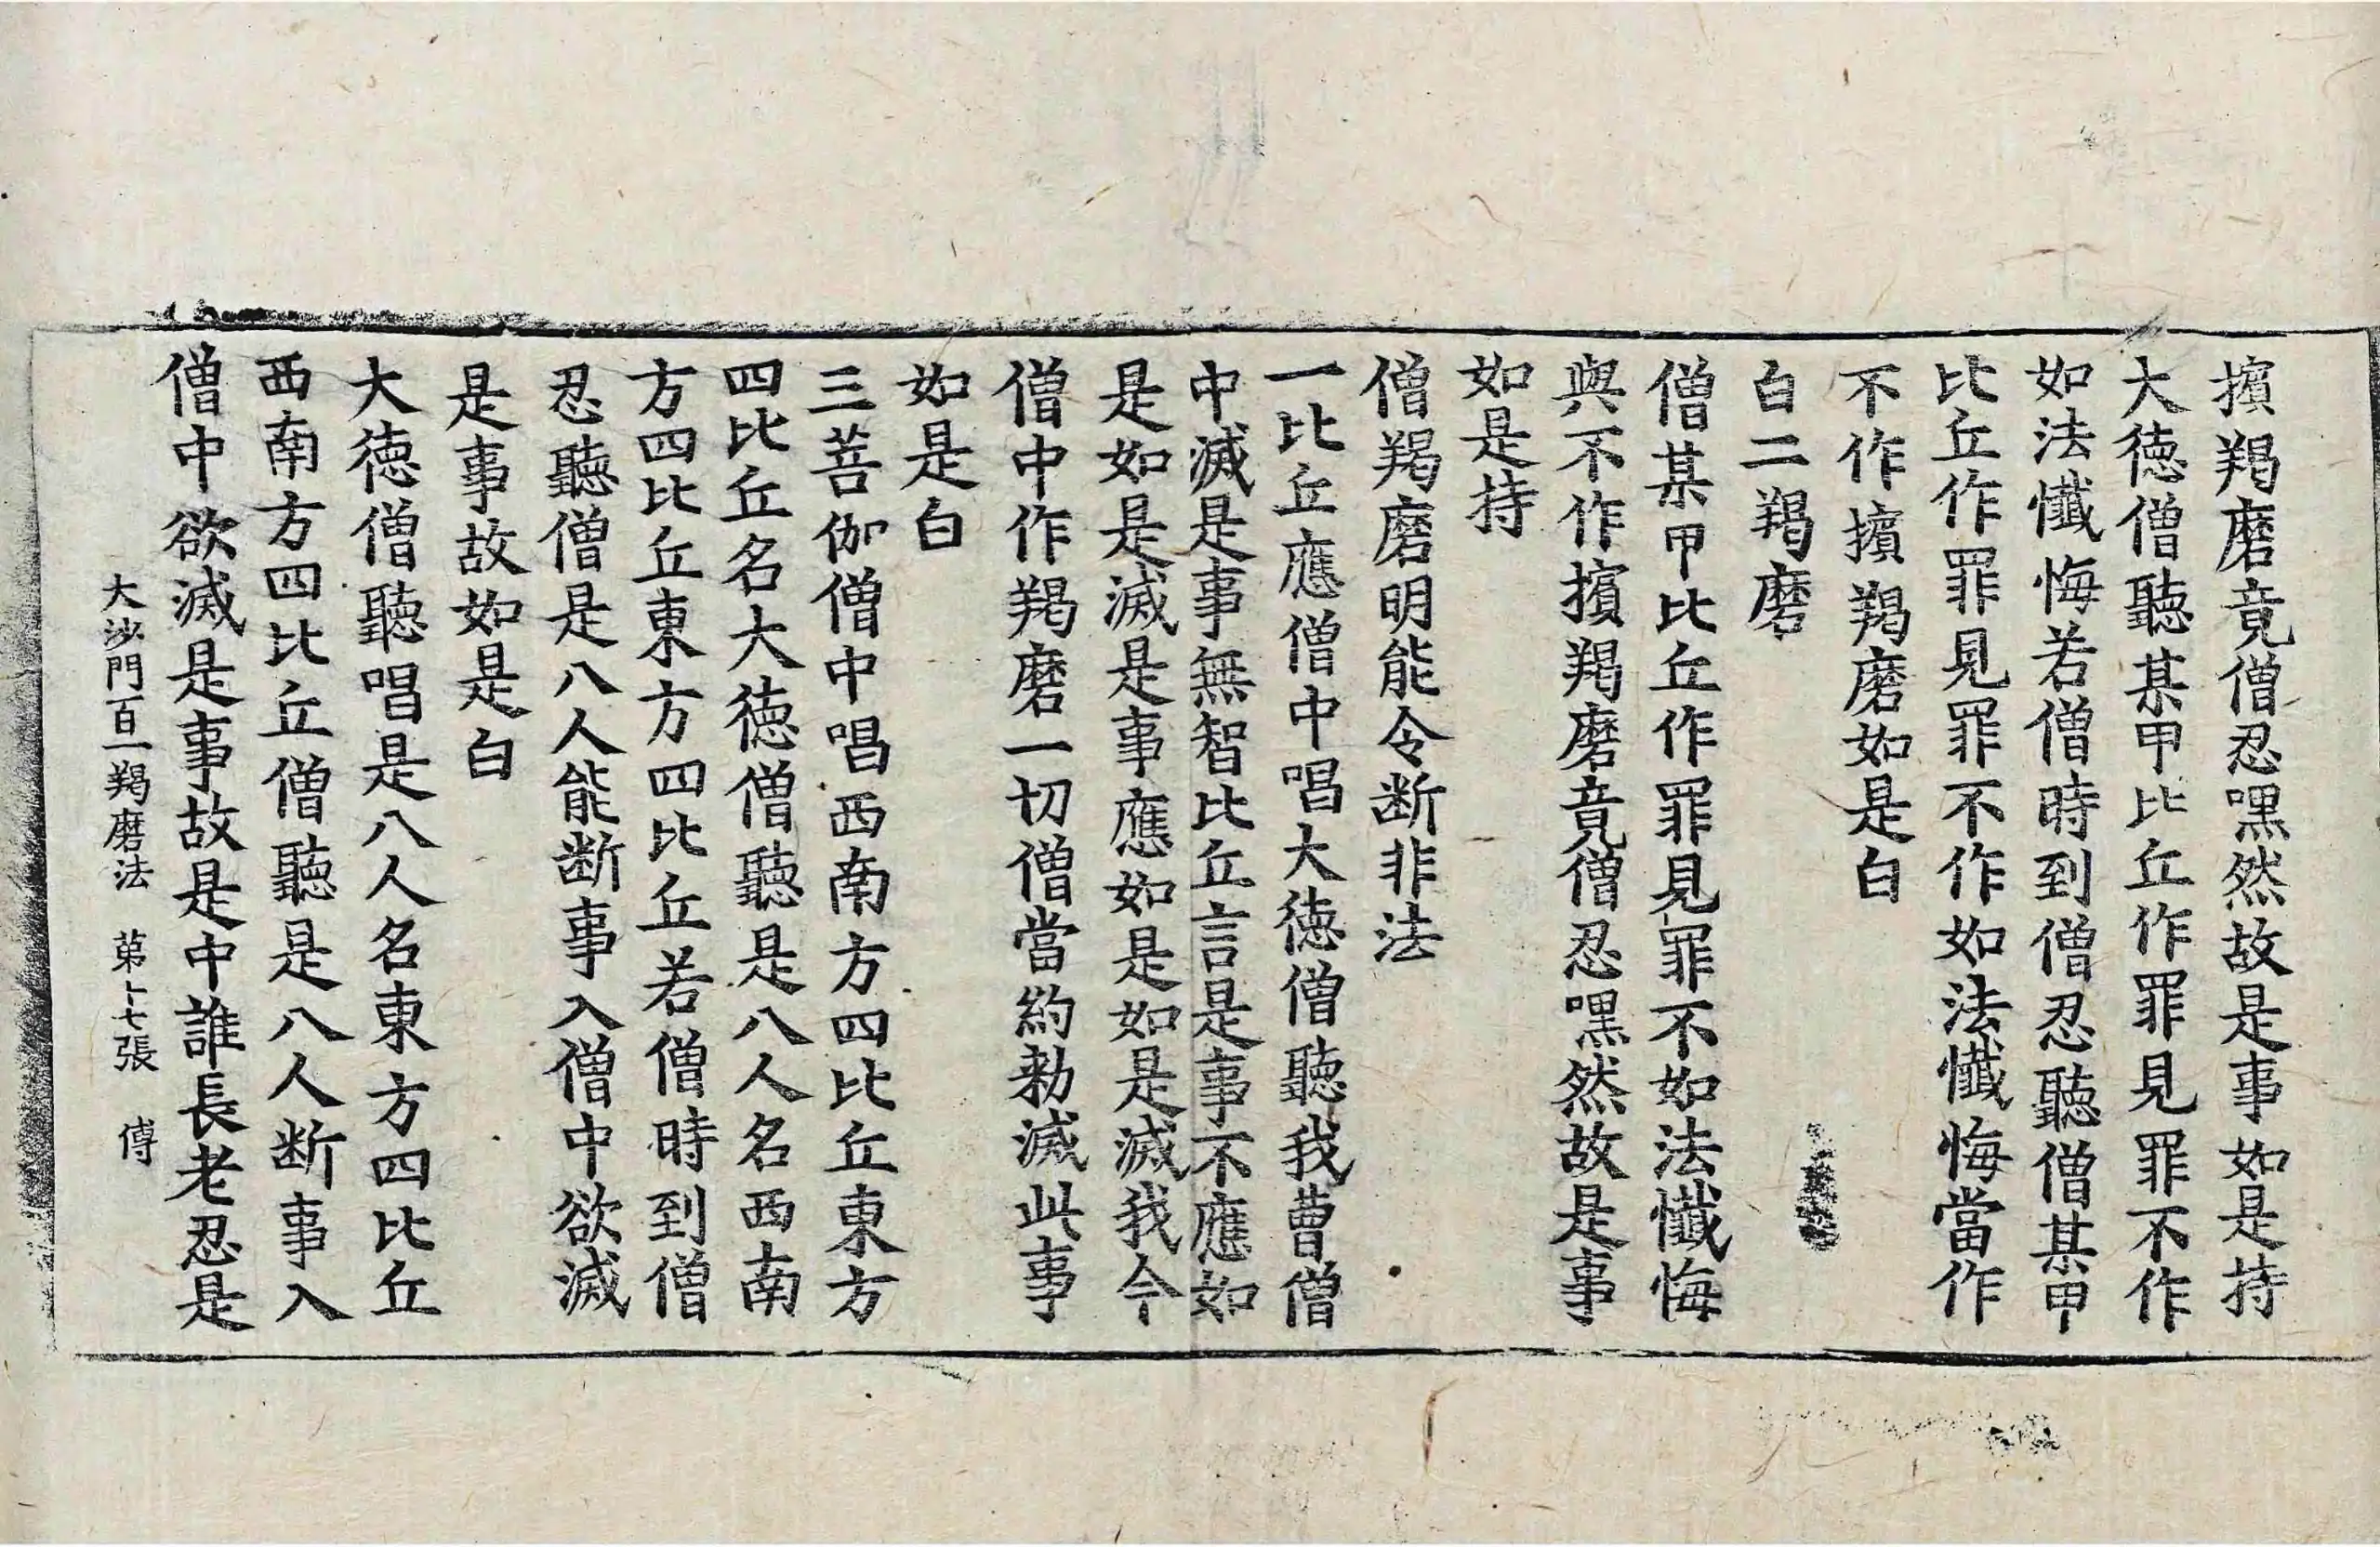 擯羯磨竟僧忍嘿然故是事如是持
大徳僧聽某甲比丘作罪見罪不作
如法懺悔若僧時到僧忍聽僧某甲
比丘作罪見罪不作如法懺悔當作
不作擯羯磨如是白
白二羯磨
僧某甲比丘作罪見罪不如法懺悔
與不作擯羯磨竟僧忍嘿然故是事
如是持
僧羯磨明能令断非法
一比丘應僧中唱大徳僧聽我曹僧
中滅是事無智比丘言是事不應如
是如是滅是事應如是如是滅我今
僧中作羯磨一切僧當約勑滅此事
如是白
三菩伽僧中唱西南方四比丘東方
四比丘名大徳僧聽是八人名西南
方四比丘東方四比丘若僧時到僧
忍聽僧是八人能断事入僧中欲滅
是事故如是白
大徳僧聽唱是八人名東方四比丘
西南方四比丘僧聽是八人断事入
僧中欲滅是事故是中誰長老忍是
大沙門百一羯磨法　苐十七張　傅